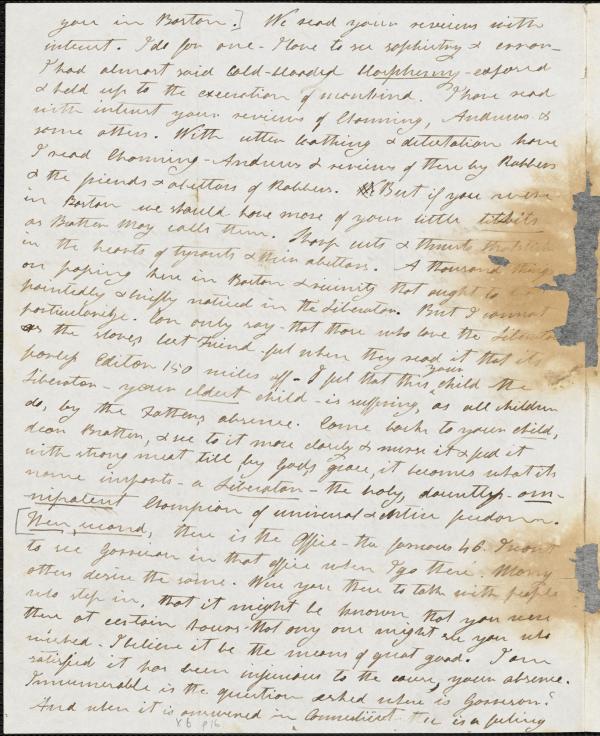 you in Boston.] We read your reviews with
interest. I do for one - I love to see sophistry & error -
I had almost said cold-blooded blasphemy - exposed
& held up to the execration of mankind. I have read
with interest your reviews of Channing, Andrews &
some others. With utter loathing & detestation have
I read Channing - Andrews & reviews of them by Robbers
& the friends & abettors of Robbers. But if you were
in Boston we should have more of your little titbits
as Brother May calls them. Sharp cuts & thrusts
in the hearts of tyrants & their abettors. A thousand things
are passing here in Boston & vicinity that ought to
pointedly & briefly noticed in the Liberator. But I cannot
particularize. Can only say - that those who love the Liberator
as the slaves last Friend - feel when they read it that its
Editor 150 miles off - I feel that this, your child the
Liberator - your eldest child - is suffering, as all children
do, by the Fathers absence. Come back to your child,
dear Brother, & see to it more closely & nurse it & feed it
with strong meat till, by Gods grace, it becomes what its
name imports - a Liberator - the holy, dauntless - om-
nipotent Champion of universal & entire freedom.
[Then, second, there is the Office - the famous 46. I want
to see Garrison in that office when I go there. Many
others desire the same. Were you there to talk with people
who step in, that it might be known that you were
there at certain hours - that any one might see you who
wished - I believe it be the means of great good. I am
satisfied it has been injurious to the cause, your absence.
Innumerable is the question asked where is Garrison?
And when it is answered in Connecticut - there is a feeling